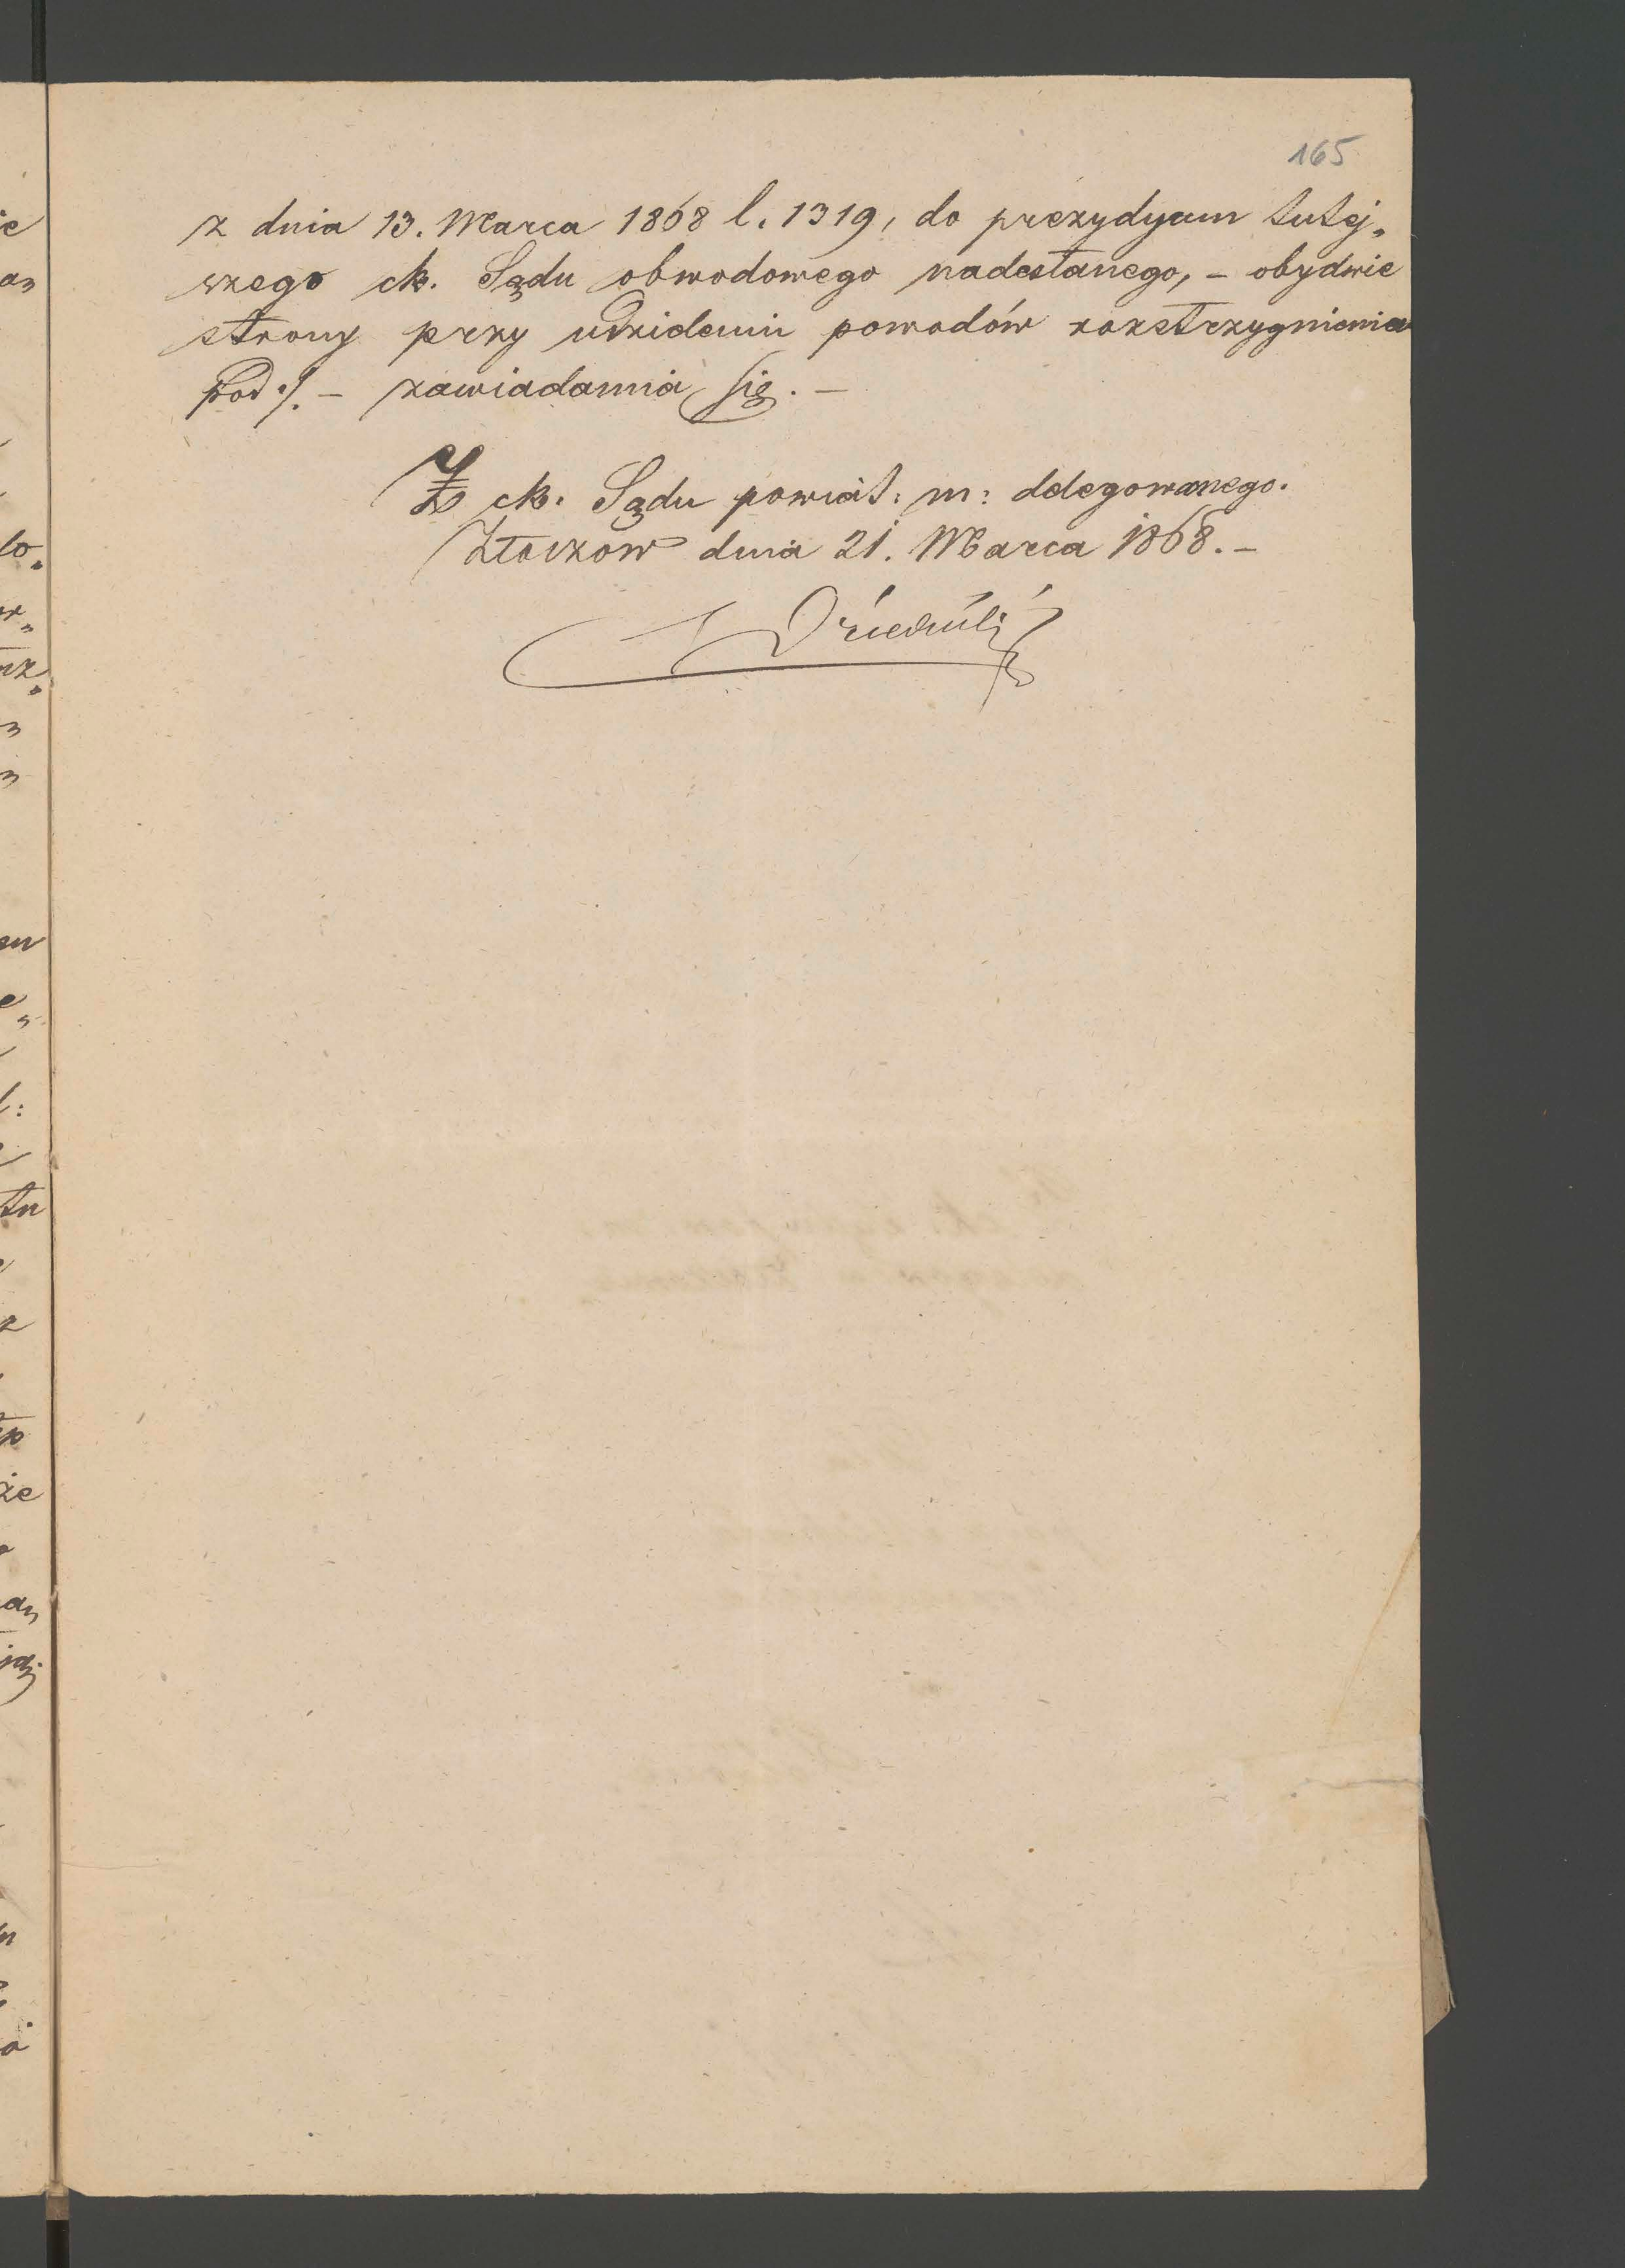 165
z dnia 13. Marca 1868 l. 1319, do prezydyum tutej„
szego ck. Sądu obwodowego nadesłanego, – obydwie
strony przy udzieleniu powodów rozstrzygnienia
pod ./. – zawiadamia się. –
Z ck. Sądu powiat: m: delegowanego.
Złoczow dnia 21. Marca 1868. –